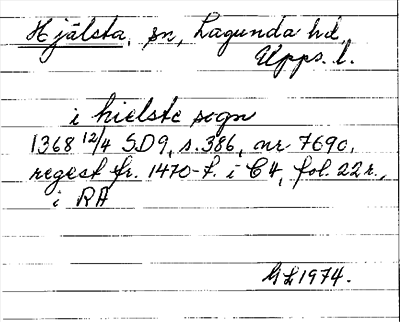 Hjälsta, sn, Lagunda hd,
Upps. l.
i hielste sogn
1368 12/4 SD9, s. 386, nr 7690,
regest fr. 1470-t. i C4, fol. 22r.,
i RA
GL 1974.